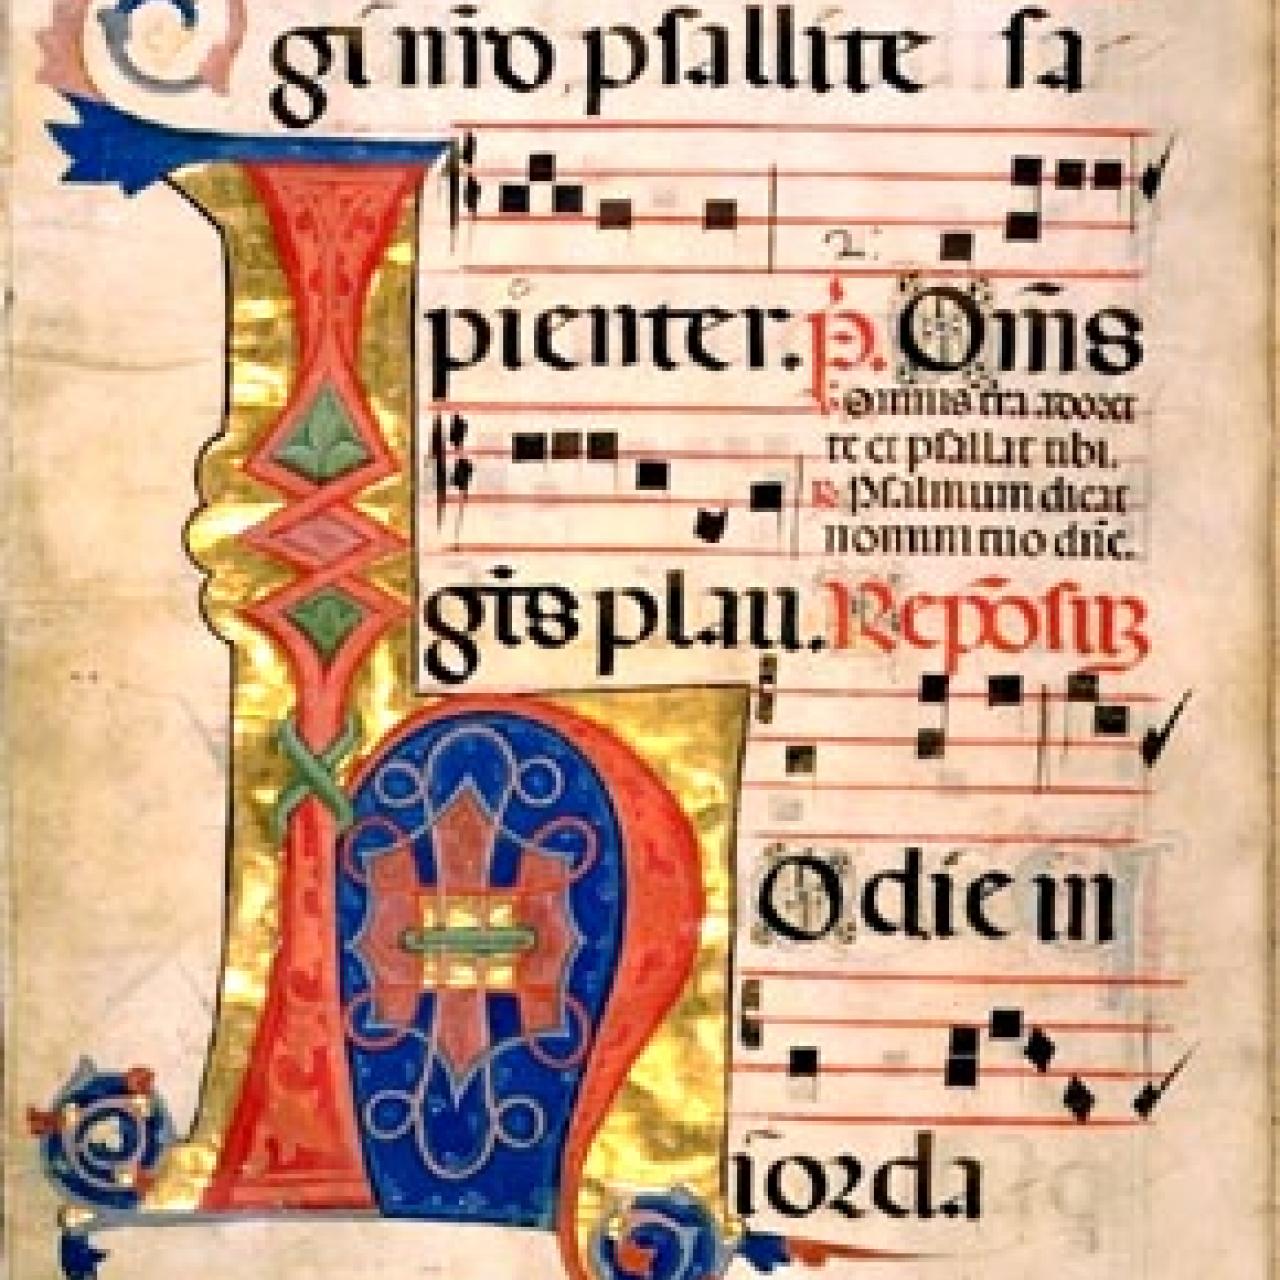 gi nio psallite sa
2:
pienter. p. Om̄s
v. Omnis tr̄a adoret
te et psallat tibi.
R. Psalmum dicat
nomini tuo dn̄e.
gt̄s plau. Rep̄osuȝ
H Odie in
iorda